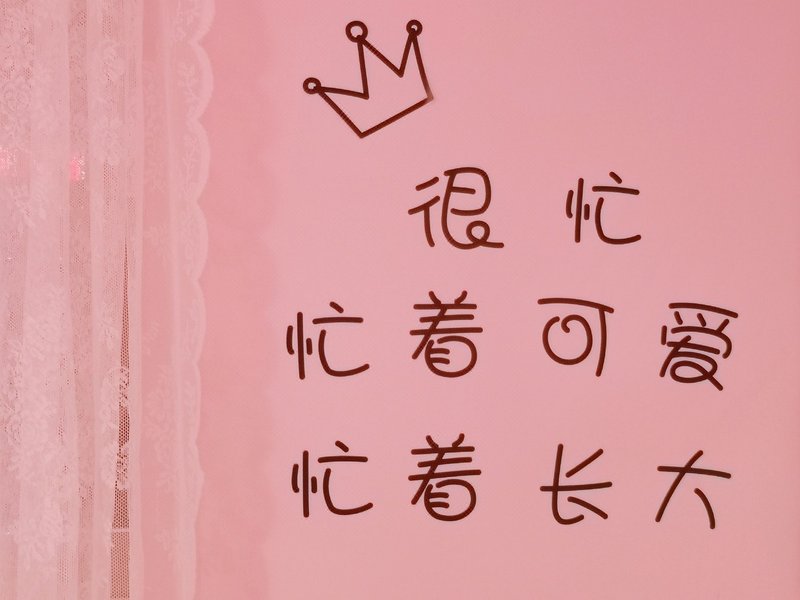 很忙
忙着可爱
忙着长大